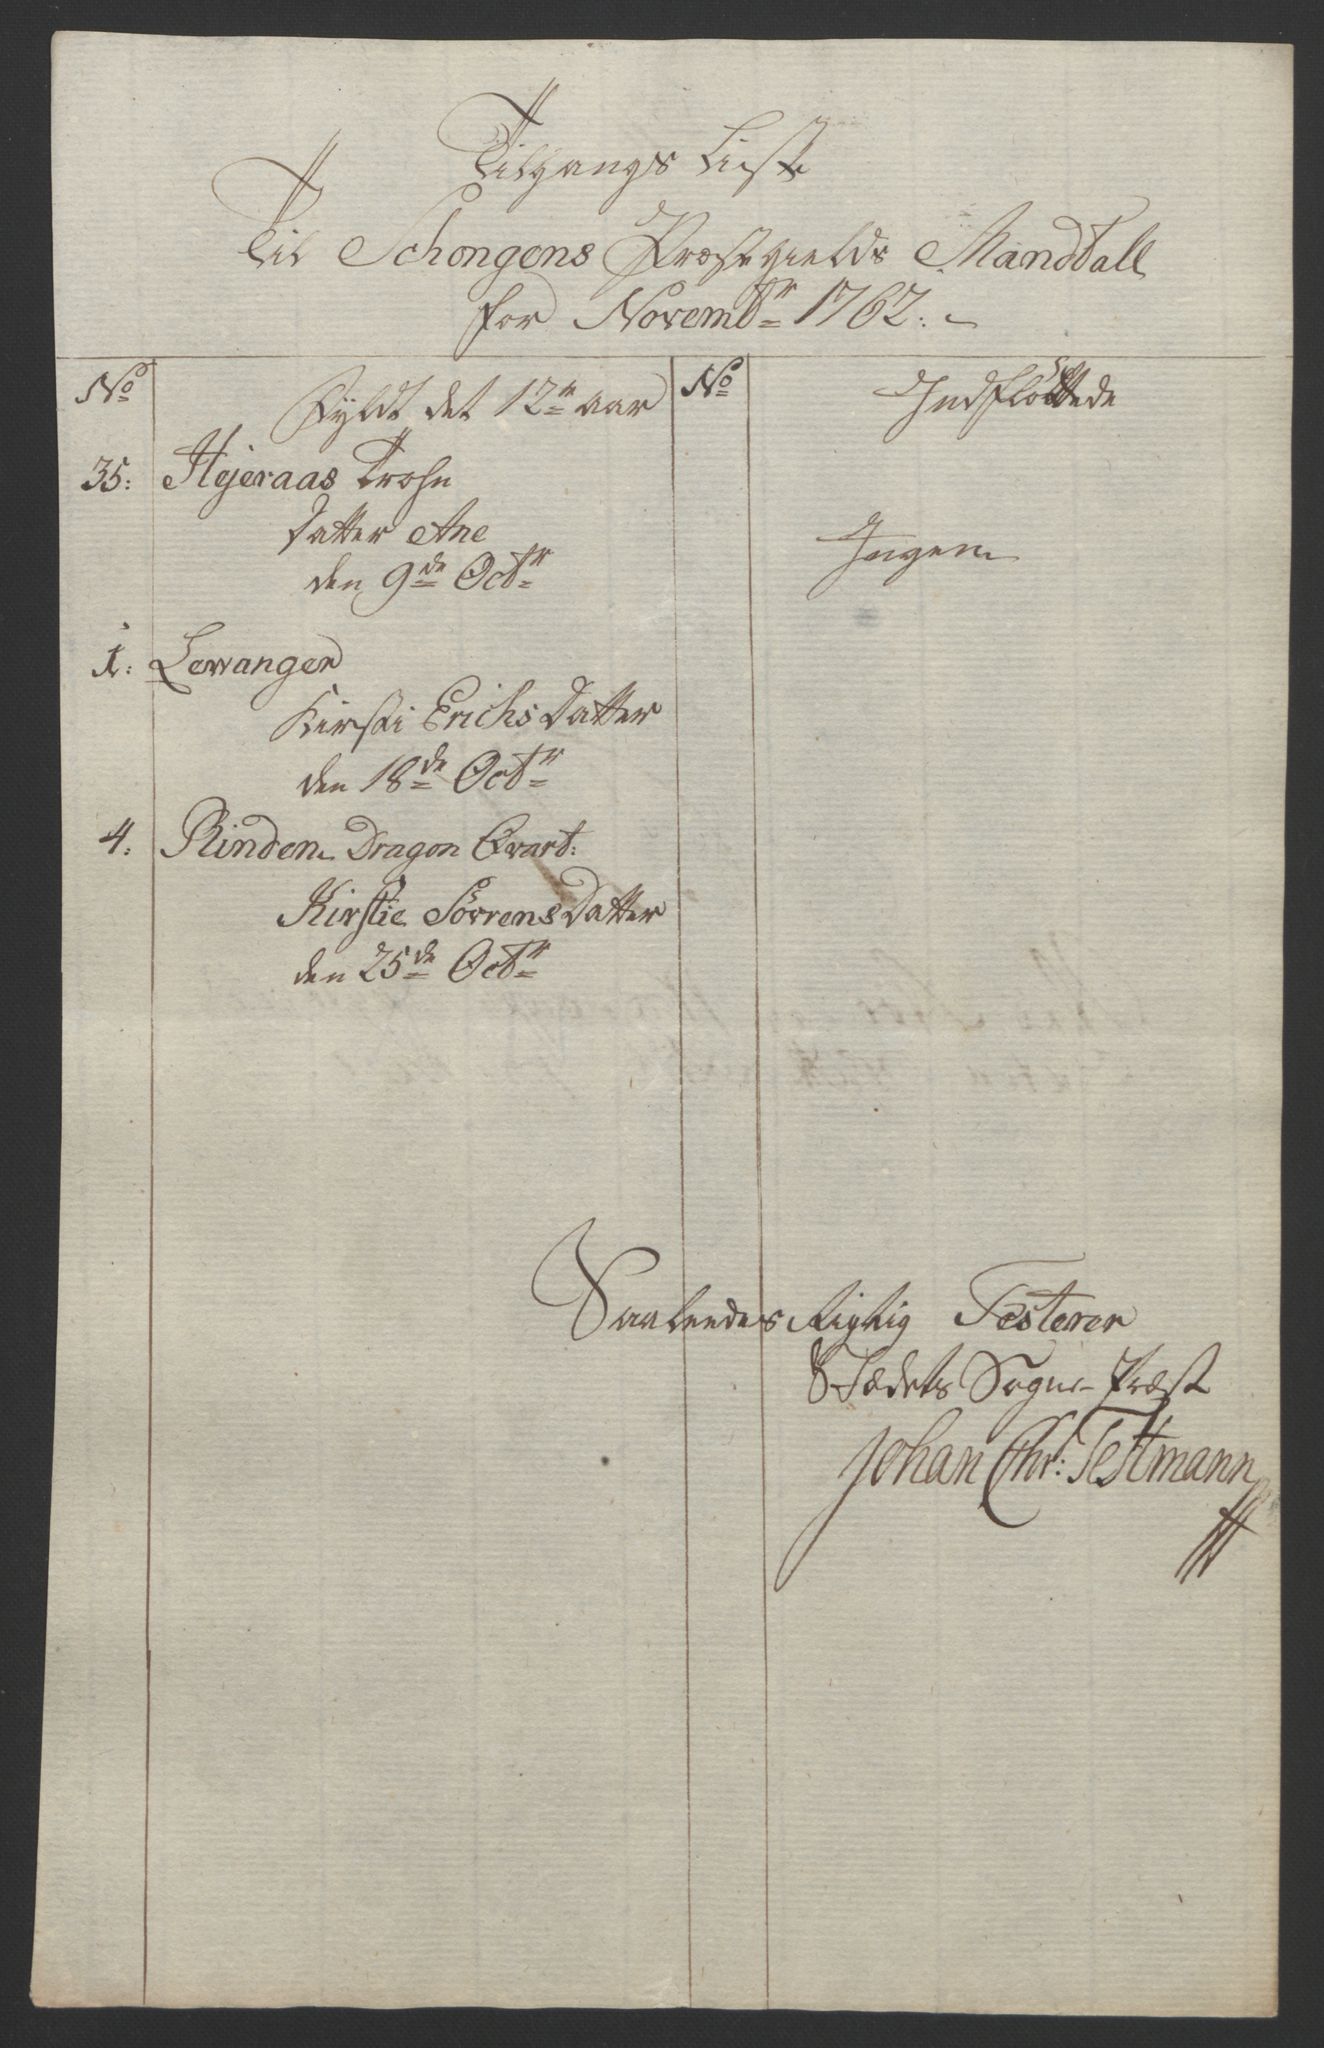 Tilgangs Liste
Til Schongens Præstegields Mandtall
for Novembr 1762.
No
Fyldt det 12te aar
No
Indfløttede
35: Hejeraas Trohn
Datter Ane
den 9de Octr
Ingen
1: Lewanger
Kirsti Erichs Datter
den 18de Octr
4: Rinden Dragon Qvart:
Kirstie Sörrens Datter
den 25de Octr
Saaleedes Rigtig Testerer
Stædets Sogne-Præst
Johan Chr: Testmann